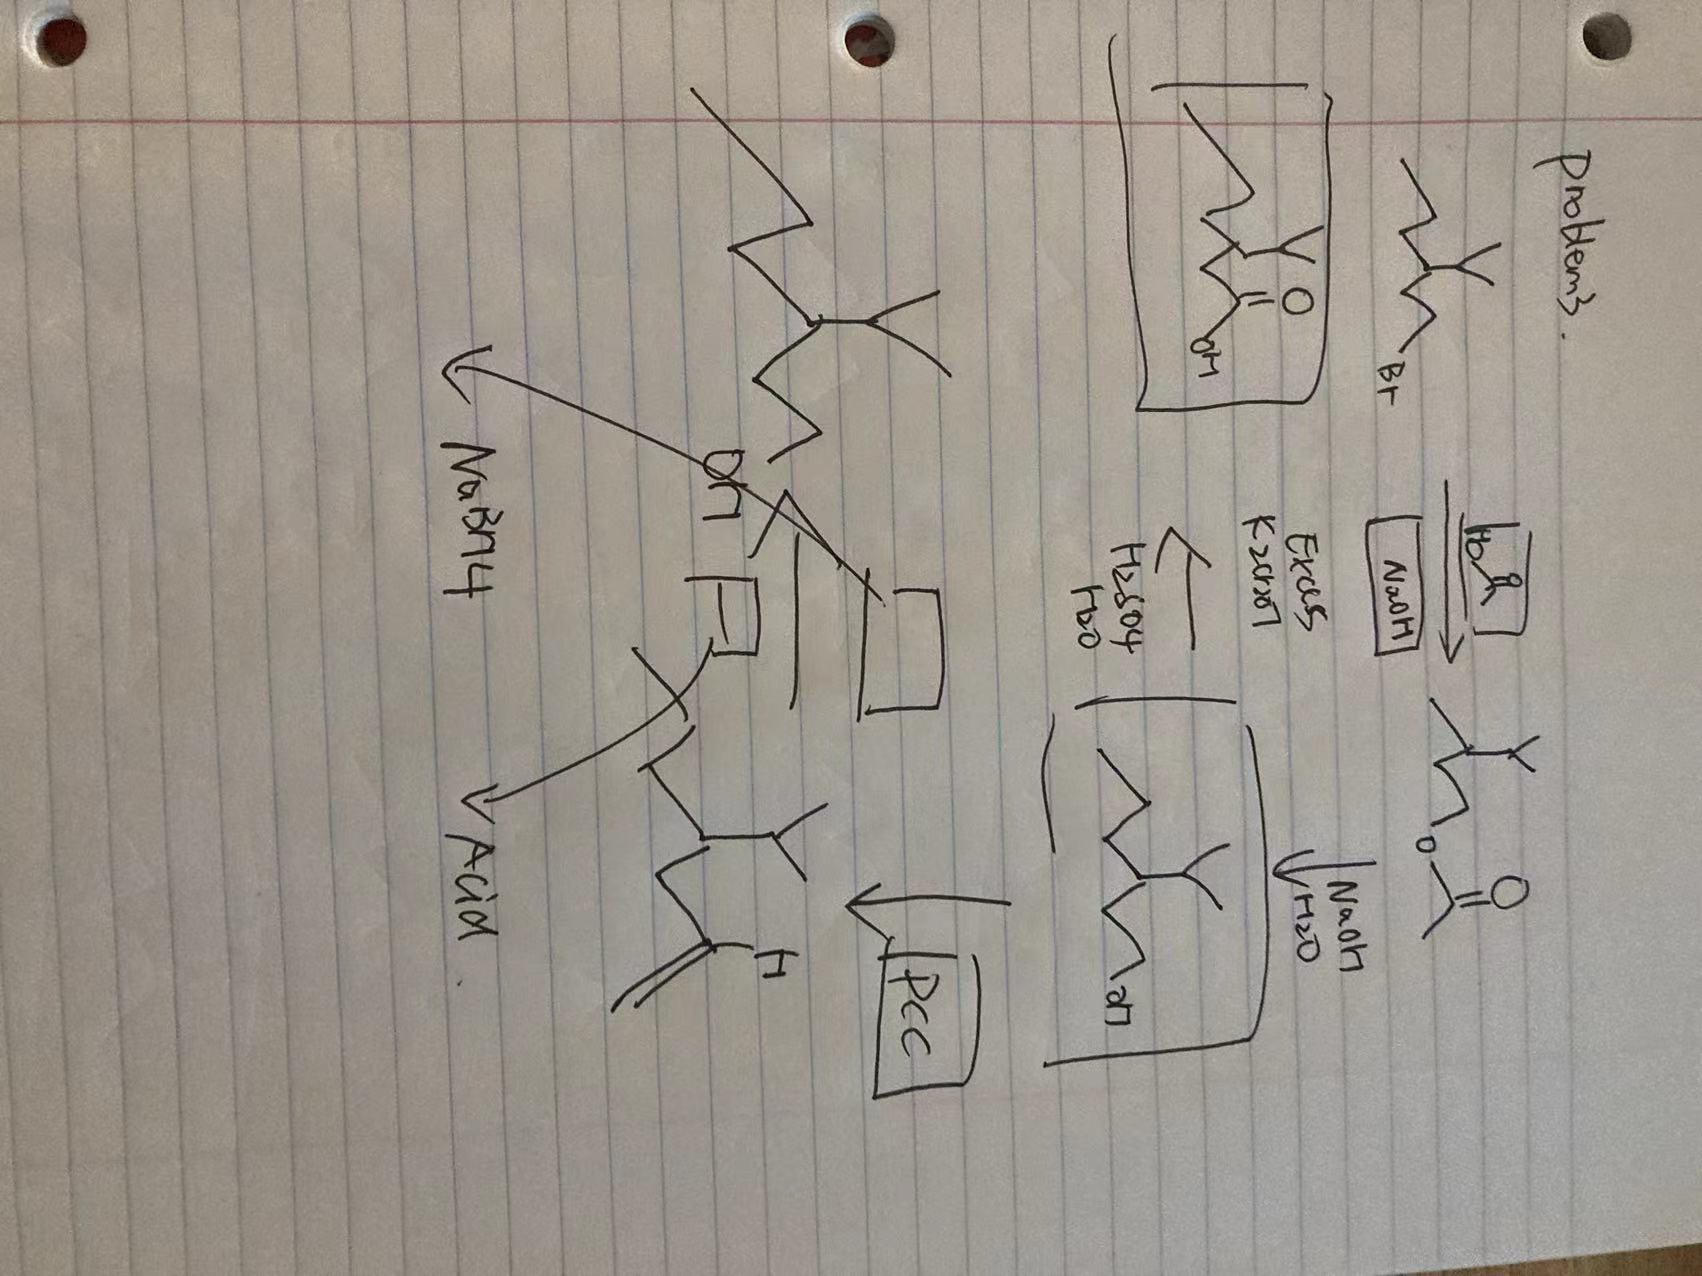 problem3.
Br
HO
NaOH
O
O
NaOH
H2O
O
OH
Exces
K2Cr2O7
H2SO4
H2O
OH
PCC
OH
H
NaBH4
Acid.